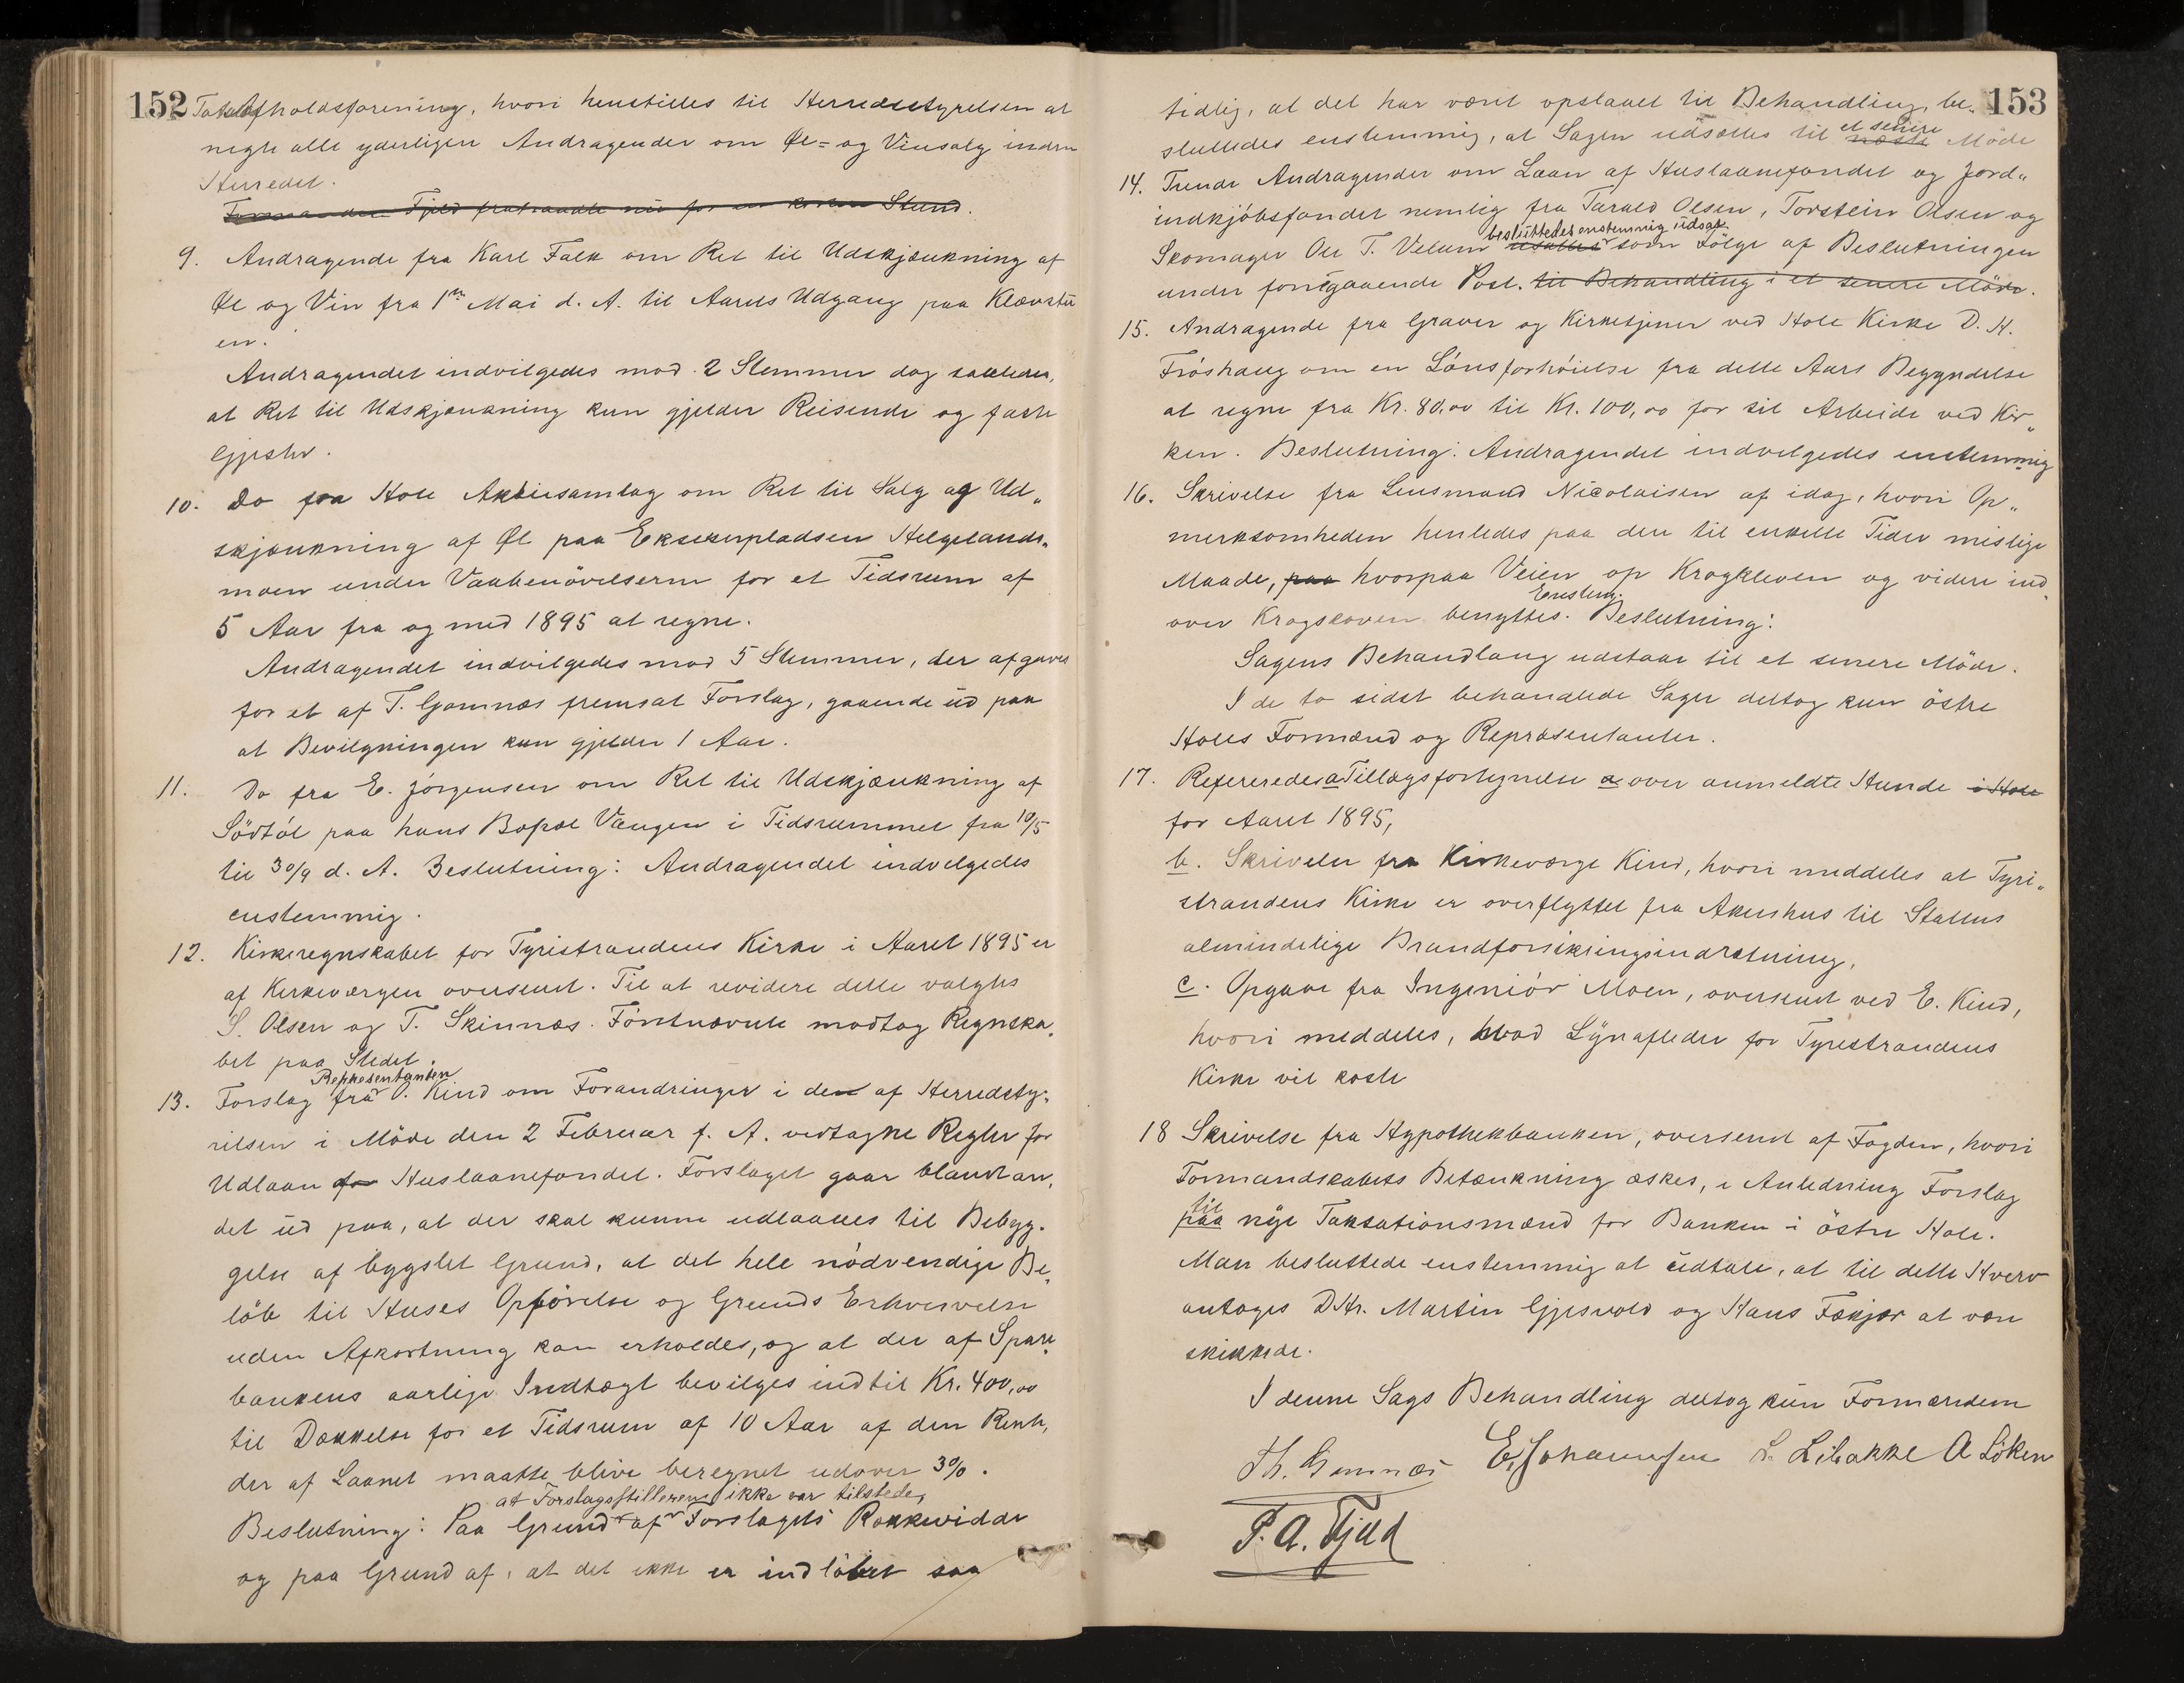 152
Totalafholdsforening, hvori henstilles til Herredsstyrelsen at
negte alle yderligere Andragender om Øl= og Vinsalg inden
Herredet.
Formanden Fjeld fratraadte nu for en kortere Stund.
9. Andragende fra Karl Falk om Ret til Udskjænkning af
Øl og Vin fra 1ste Mai d. A. til Aarets Udgang paa Klævstu
en.
Andragendet indvilgedes mod 2 Stemmer dog saaledes,
at Ret til Udskjænkning kun gjelder Reisende og faste
Gjester.
10. Do fra Hole Aktiesamlag om Ret til Salg og Ud„
skjænkning af Øl paa Eksekserpladsen Helgelands„
moen under Vaabenövelserne for et Tidsrum af
5 Aar fra og med 1895 at regne.
Andragendet indvilgedes mod 5 Stemmer, der afgaves
for et af T. Gomnæs fremsat Forslag, gaaende ud paa
at Bevilgningen kun gjelder 1 Aar.
11. Do fra E. Jörgensen om Ret til Udskjænkning af
Södtöl paa hans Bopæl Vængen i Tidsrummet fra 10/5
til 30/9 d. A. Beslutning: Andragendet indvilgedes
enstemmig.
12. Kirkeregnskabet for Tyristrandens Kirke i Aaret 1895 er
af Kirkeværgen oversendt. Til at revidere dette valgtes
S. Olsen og T. Skinnæs. Förstnævnte modtog Regnska„
bet paa Stedet.
Repræsentanten
13. Forslag fra O. Kind om Forandringer i den af Herredsty„
relsen i Möde den 2 Februar f. A. vedtagne Regler for
Udlaan af Huslaanefondet. Forslaget gaar blandt an„
det ud paa, at der skal kunne udlaanes til Bebyg„
gelse af bygslet Grund, at det hele nödvendige Be„
löb til Huses Opförelse og Grunds Erhvervelse
uden Afkortning kan erholdes, og at der af Spare„
bankens aarlige Indtægt bevilges indtil Kr. 400,00
til Dækkelse for et Tidsrum af 10 Aar af den Rente,
der af Laanet maatte blive beregnet udover 3%.
at Forslagsstilleren ikke var tilstede,
Beslutning: Paa Grund af Forslagets Rækkevidde
og paa Grund af, at det ikke er indløbet saa
153
tidlig, at det har været opslaaet til Behandling, be„
sluttedes enstemmig, at Sagen udsættes til næste et senere Möde
14. Trende Andragender om Laan af Huslaanefondet og Jord„
indkjöbsfondet nemlig fra Tarald Olsen, Torstein Olsen og
besluttedes enstemmig udsat
Skomager Ole T. Velum udsættes som Fölge af Beslutningen
under foregaaende Post. til Behandling i et senere Möde.
15. Andragende fra Graver og Kirketjener ved Hole Kirke D. H.
Fröshaug om en Lönsforhöielse fra dette Aars Begyndelse
at regne fra Kr. 80,00 til Kr. 100,00 for sit Arbeide ved Kir„
ken. Beslutning: Andragendet indvilgedes enstemmig
16. Skrivelse fra Lensmand Nicolaisen af idag, hvori Op„
merksomheden henledes paa den til enkelte Tider mislige
Maade, paa hvorpaa Veien op Krogkleven og videre ind„
Enstem.
over Krogskoven benyttes. Beslutning:
Sagens Behandlang udstaar til et senere Möde.
I de to sidst behandlede Sager deltog kun östre
Holes Formænd og Repræsentanter.
17. Refereredes a Tillægsfortegnelse a over anmeldte Hunde i Hole
for Aaret 1895,
b. Skrivelse fra Kirkeværge Kind, hvori meddeles at Tyri„
strandens Kirke er overflyttet fra Akershus til Statens
almindelige Brandforsikringsindretning,
c. Opgave fra Ingeniör Moen, oversendt ved E. Kind,
hvori meddeles, hvad Lynafleder for Tyristrandens
Kirke vil koste
18 Skrivelse fra Hypothekbanken, oversendt af Fogden, hvori
Formandskabets Betænkning æskes, i Anledning Forslag
til
paa nye Taksationsmænd for Banken i östre Hole.
Man besluttede enstemmig at udtale, at til dette Hverv
antages DHr. Martin Gjesvold og Hans Fækjær at være
skikkede.
I denne Sags Behandling deltog kun Formændene
Th. Gomnæs E. Johannesen L. Libakke A Löken
P. A. Fjeld